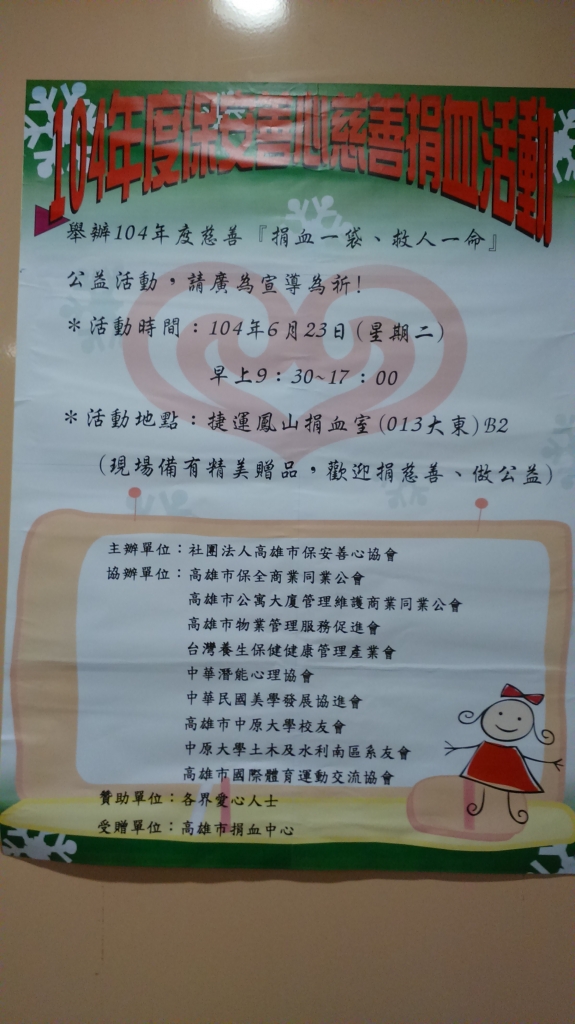 104年度保安善心慈善捐血活動
舉辦104年度慈善『捐血一袋、救人一命』
公益活動，請廣為宣導為祈!
＊活動時間：104年6月23日(星期二)
早上9：30~17：00
＊活動地點：捷運鳳山捐血室(013大東)B2
(現場備有精美贈品，歡迎捐慈善、做公益)
主辦單位：社團法人高雄市保安善心協會
協辦單位：高雄市保全商業同業公會
高雄市公寓大廈管理維護商業同業公會
高雄市物業管理服務促進會
台灣養生保健健康管理產業會
中華潛能心理協會
中華民國美學發展協進會
高雄市中原大學校友會
中原大學土木及水利南區系友會
高雄市國際體育運動交流協會
贊助單位：各界愛心人士
受贈單位：高雄市捐血中心